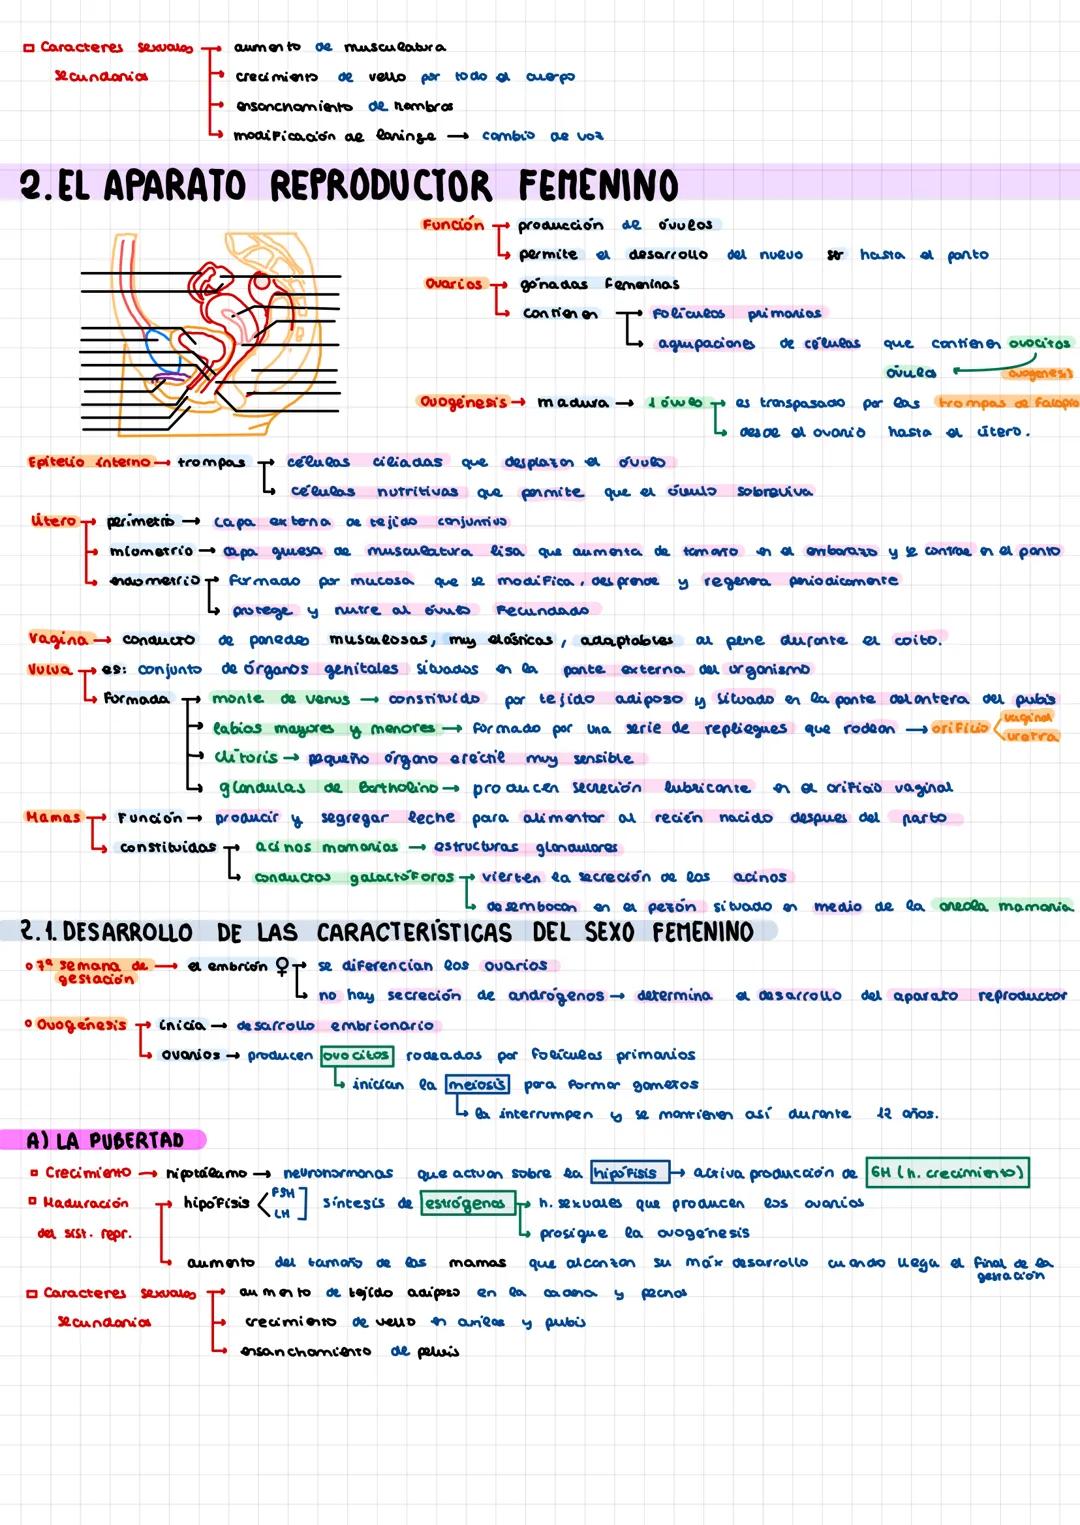 Caracteres sexuales → aumento de musculatura
secundarios → crecimiento de vello por todo el cuerpo
→ ensanchamiento de hombros
→ modificación de laringe → cambio de voz
2. EL APARATO REPRODUCTOR FEMENINO
Función → producción de óvulos
→ permite el desarrollo del nuevo ser hasta el parto
Ovarios → gónadas femeninas
→ contienen → folículos primarios
→ agrupaciones de células que contienen ovocitos
óvulos ← ovogénesis
Ovogénesis → madura → 1 óvulo → es transpasado por las trompas de falopio
→ desde el ovario hasta el útero.
Epitelio interno → trompas → células ciliadas que desplazan el óvulo
→ células nutritivas que permite que el óvulo sobreviva
Útero → perimetrio → capa externa de tejido conjuntivo
→ miometrio → capa gruesa de musculatura lisa que aumenta de tamaño en el embarazo y se contrae en el parto
→ endometrio → formado por mucosa que se modifica, desprende y regenera periodicamente
→ protege y nutre al óvulo fecundado
Vagina → conducto de paredes musculosas, muy elásticas, adaptables al pene durante el coito.
Vulva → es: conjunto de órganos genitales situados en la parte externa del organismo
→ Formada → monte de venus → constituído por tejido adiposo y situado en la parte delantera del pubis
→ labios mayores y menores → formado por una serie de repliegues que rodean → orificio < vaginal
uretra
→ clítoris → pequeño órgano eréctil muy sensible
→ glándulas de Bartholino → producen secreción lubricante en el orificio vaginal
Mamas → Función → producir y segregar leche para alimentar al recién nacido despues del parto
→ constituidas → acinos mamarios → estructuras glandulares
→ conductos galactóforos → vierten la secreción de los acinos
→ desembocan en el pezón situado en medio de la areola mamaria
2.1. DESARROLLO DE LAS CARACTERÍSTICAS DEL SEXO FEMENINO
7ª semana de → el embrión ♀ → se diferencían los ovarios
gestación
→ no hay secreción de andrógenos → determina el desarrollo del aparato reproductor
Ovogénesis → inicia → desarrollo embrionario
→ ovarios → producen ovocitos rodeados por folículos primarios
→ inician la meiosis para formar gametos
→ la interrumpen y se mantienen así durante 12 años.
A) LA PUBERTAD
Crecimiento → hipotálamo → neurohormonas que actúan sobre la hipófisis → activa producción de GH (h. crecimiento)
Maduración → hipófisis < FSH
LH ] síntesis de estrógenos → h. sexuales que producen los ovarios
del sist. repr. → prosigue la ovogénesis
→ aumento del tamaño de las mamas que alcanzan su máx desarrollo cuando llega el final de la
gestación
Caracteres sexuales → aumento de tejido adiposo en la cadera y pechos
secundarios → crecimiento de vello en axilas y pubis
→ ensanchamiento de pelvis